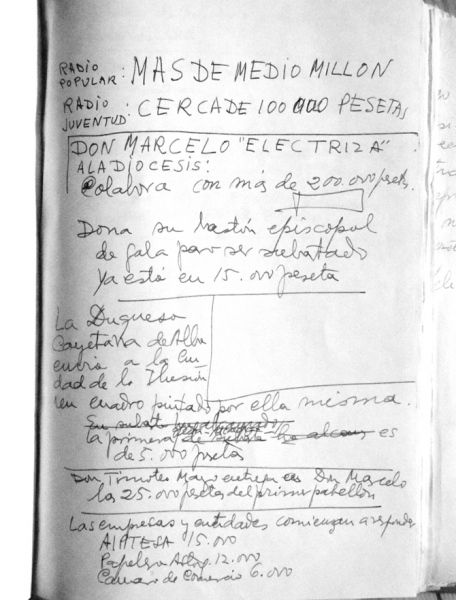 RADIO POPULAR: MAS DE MEDIO MILLON
RADIO JUVENTUD: CERCA DE 100.000 PESETAS
DON MARCELO "ELECTRIZA"
A LA DIOCESIS:
Colabora con más de 200.000 pesets.
Dona su bastón episcopal
de gala para ser subastado
ya está en 15.000 peseta
La Duquesa
Cayetana de Alba
envia a la Ciu
dad de la Ilusión
un cuadro pintado por ella misma.
la primera es
de 5.000 pesetas
Don Timoteo Mayo entrega Don Marcelo
las 25.000 pesetas del primer pabellón
Las empresas y entidades comienzan a responder
15.000
Papelera 12.000
Camara de Comercio 6.000